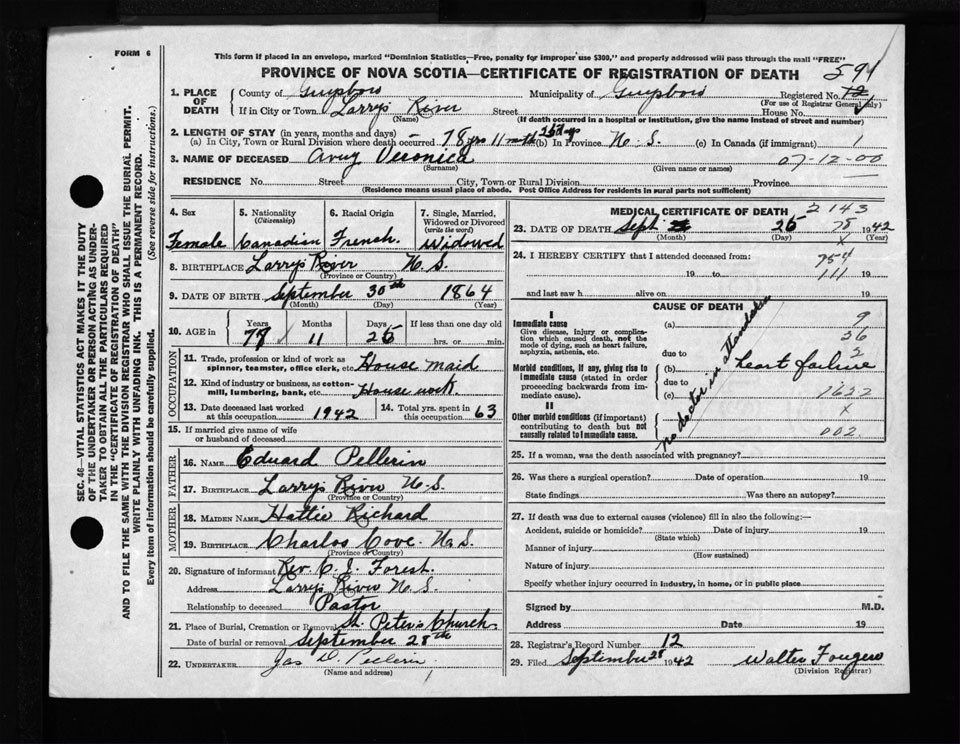 FORM 6
This form if placed in an envelope, marked "Dominion Statistics—Free, penalty for improper use $300," and properly addressed will pass through the mail "FREE"
PROVINCE OF NOVA SCOTIA—CERTIFICATE OF REGISTRATION OF DEATH 591
SEC. 46—VITAL STATISTICS ACT MAKES IT THE DUTY
OF THE UNDERTAKER OR PERSON ACTING AS UNDER-
TAKER TO OBTAIN ALL THE PARTICULARS REQUIRED
IN THE "CERTIFICATE OF REGISTRATION OF DEATH"
AND TO FILE THE SAME WITH THE DIVISION REGISTRAR WHO SHALL ISSUE THE BURIAL PERMIT.
WRITE PLAINLY WITH UNFADING INK. THIS IS A PERMANENT RECORD.
Every item of information should be carefully supplied. (See reverse side for instructions.)
1. PLACE OF DEATH
County of Guysboro Municipality of Guysboro Registered No. 12
(For use of Registrar General only)
If in City or Town Larrys River Street House No.
(Name) (If death occurred in a hospital or institution, give the name instead of street and number)
2. LENGTH OF STAY (in years, months and days)
(a) In City, Town or Rural Division where death occurred 78 yrs 11 mth 26 dys (b) In Province N. S. (c) In Canada (if immigrant)
3. NAME OF DECEASED Avery Veronica 07-12-00
(Surname) (Given name or names)
RESIDENCE No. Street City, Town or Rural Division Province
(Residence means usual place of abode. Post Office Address for residents in rural parts not sufficient)
4. Sex Female
5. Nationality (Citizenship) Canadian
6. Racial Origin French.
7. Single, Married, Widowed or Divorced (write the word) Widowed
8. BIRTHPLACE Larrys River N. S.
(Province or Country)
9. DATE OF BIRTH September 30th 1864
(Month) (Day) (Year)
10. AGE in Years 78 Months 11 Days 26 If less than one day old hrs. or min.
OCCUPATION
11. Trade, profession or kind of work as spinner, teamster, office clerk, etc. House maid
12. Kind of industry or business, as cotton-mill, lumbering, bank, etc. House work
13. Date deceased last worked at this occupation 1942
14. Total yrs. spent in this occupation 63
15. If married give name of wife or husband of deceased
FATHER
16. NAME Eduard Pellerin
17. BIRTHPLACE Larrys River N.S.
(Province or Country)
MOTHER
18. MAIDEN NAME Hattie Richard
19. BIRTHPLACE Charlos Cove. N.S.
(Province or Country)
20. Signature of informant Rev. C. J. Forest.
Address Larrys River N. S.
Relationship to deceased Pastor
21. Place of Burial, Cremation or Removal St. Peters Church
Date of burial or removal September 28th
22. UNDERTAKER Jas D. Pellerin
(Name and address)
MEDICAL CERTIFICATE OF DEATH 2143
23. DATE OF DEATH Sept 26 1942
(Month) (Day) (Year)
78
X
24. I HEREBY CERTIFY that I attended deceased from:
954
19 to 111 19
and last saw h alive on 19
CAUSE OF DEATH
I
Immediate cause
Give disease, injury or complication which caused death, not the mode of dying, such as heart failure, asphyxia, asthenia, etc.
(a) 9
36
due to 2
Morbid conditions, if any, giving rise to immediate cause (stated in order proceeding backwards from immediate cause).
(b) heart failure
due to
(c) 1622
II
Other morbid conditions (if important) contributing to death but not causally related to immediate cause.
X
002
no doctor in attendance
25. If a woman, was the death associated with pregnancy?
26. Was there a surgical operation? Date of operation 19
State findings Was there an autopsy?
27. If death was due to external causes (violence) fill in also the following:—
Accident, suicide or homicide? Date of injury 19
(State which)
Manner of injury
(How sustained)
Nature of injury
Specify whether injury occurred in industry, in home, or in public place
Signed by M.D.
Address Date 19
28. Registrar's Record Number 12
29. Filed September 28 1942 Walter Fougere
(Division Registrar)